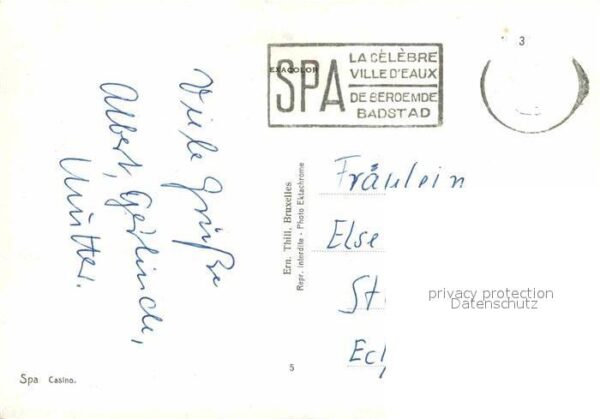 Viele Grüße
Albert, Gerlinde,
Mutter.
Spa Casino.
Ern. Thill, Bruxelles
Repr. interdite - Photo Ektachrome
5
3
EXACOLOR
SPA
LA CÉLÈBRE
VILLE D'EAUX
DE BEROEMDE
BADSTAD
Fräulein
Else
St
Ech
privacy protection
Datenschutz